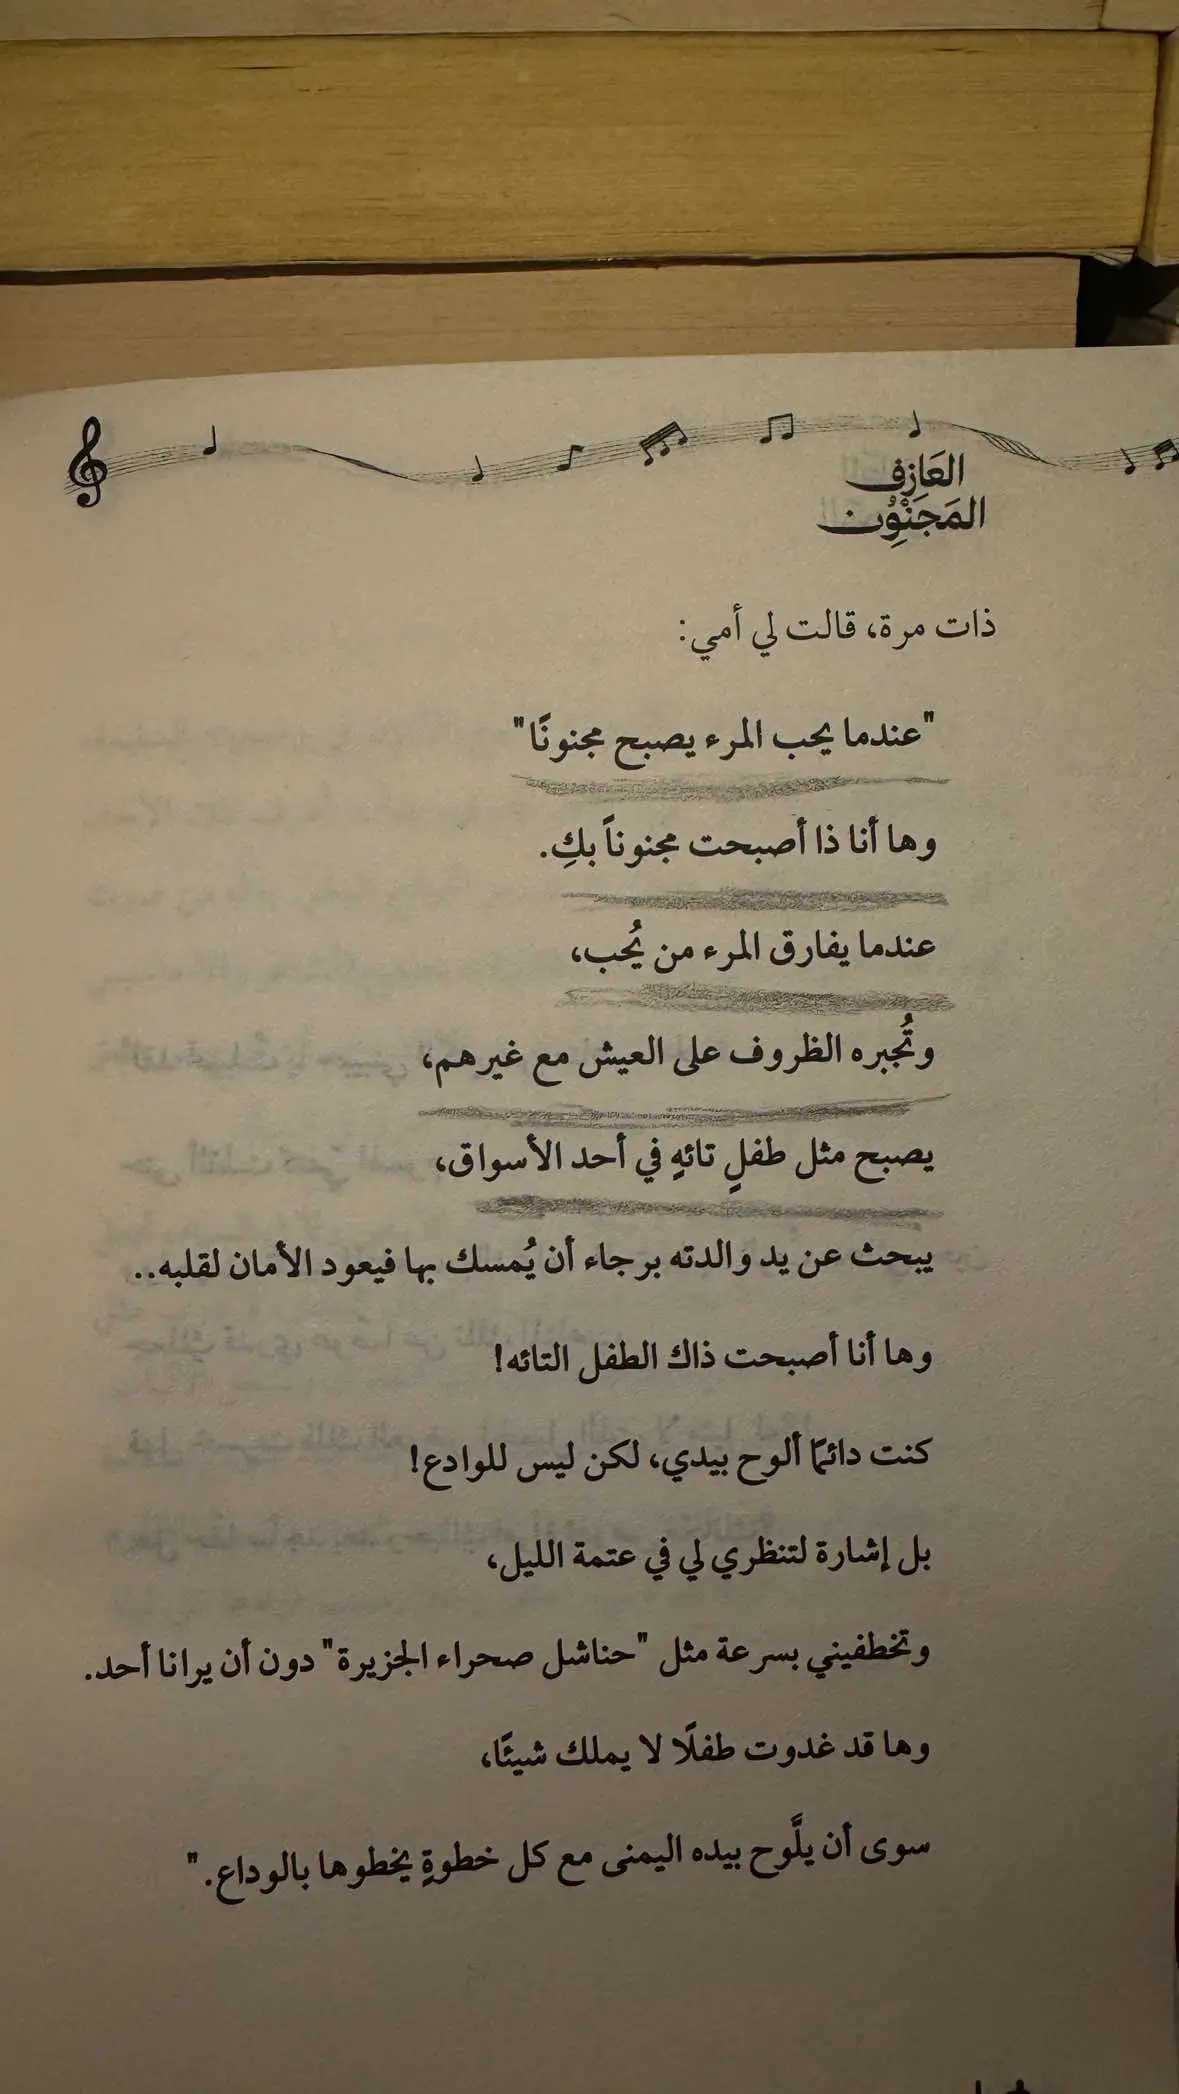 العَازِف
المَجَنْوُن
ذات مرة، قالت لي أمي:
"عندما يحب المرء يصبح مجنونًا"
وها أنا ذا أصبحت مجنوناً بكِ.
عندما يفارق المرء من يُحب،
وتُجبره الظروف على العيش مع غيرهم،
يصبح مثل طفلٍ تائهٍ في أحد الأسواق،
يبحث عن يد والدته برجاء أن يُمسك بها فيعود الأمان لقلبه..
وها أنا أصبحت ذاك الطفل التائه!
كنت دائمًا ألوح بيدي، لكن ليس للوادع!
بل إشارة لتنظري لي في عتمة الليل،
وتخطفيني بسرعة مثل "حناشل صحراء الجزيرة" دون أن يرانا أحد.
وها قد غدوت طفلًا لا يملك شيئًا،
سوى أن يلَّوح بيده اليمنى مع كل خطوةٍ يخطوها بالوداع."